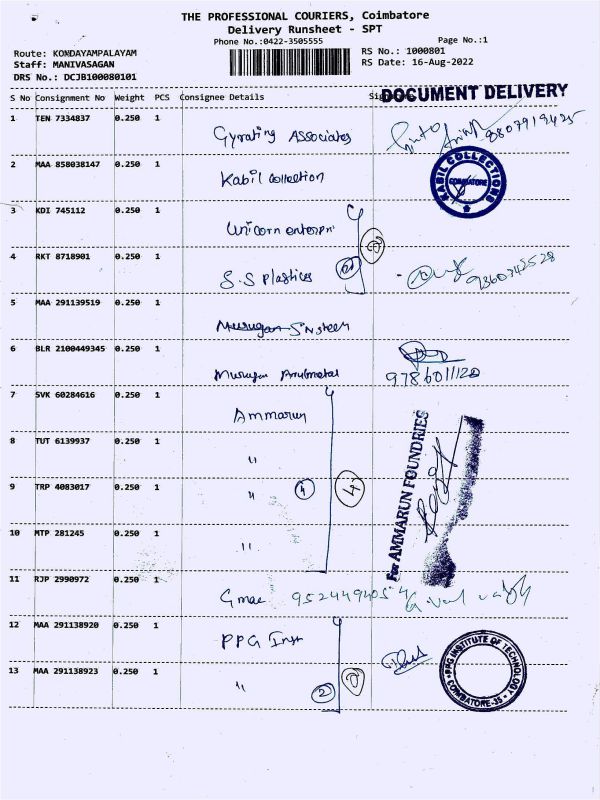 THE PROFESSIONAL COURIERS, Coimbatore
Delivery Runsheet - SPT
Phone No.:0422-3505555
Page No.:1
Route: KONDAYAMPALAYAM
RS No.: 1000801
Staff: MANIVASAGAN
RS Date: 16-Aug-2022
DRS No.: DCJB100080101
DOCUMENT DELIVERY
S No Consignment No Weight PCS Consignee Details
1 TEN 7334837 0.250 1 Gyrating Associates 8807919425
2 MAA 858038147 0.250 1 Kabil Collection
KABIL COLLECTIONS
COIMBATORE
3 KDI 745112 0.250 1 Unicorn enterpri
4 RKT 8718901 0.250 1 S.S Plastics 9360742528
5 MAA 291139519 0.250 1
6 BLR 2100449345 0.250 1 Murugan
9786011120
7 SVK 60284616 0.250 1 Ammarun
8 TUT 6139937 0.250 1 "
9 TRP 4083017 0.250 1 " 4 4
10 MTP 281245 0.250 1 "
For AMMARUN FOUNDRIES
11 RJP 2990972 0.250 1 Gmac 9524494054
12 MAA 291138920 0.250 1 PPG Inst
13 MAA 291138923 0.250 1 " 2
PPG INSTITUTE OF TECHNOLOGY
COIMBATORE-35